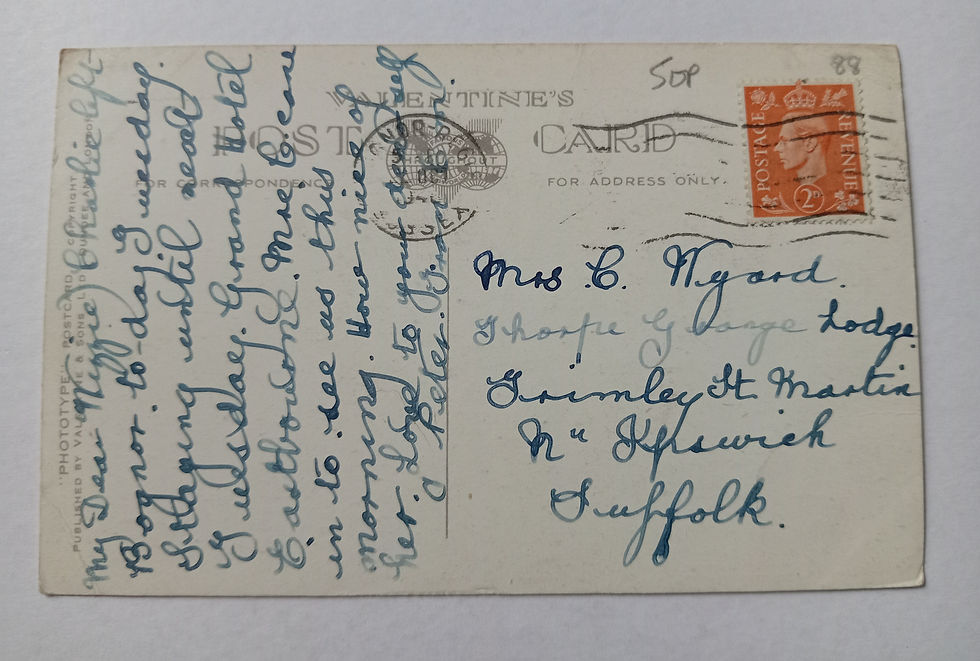 50P
88
VALENTINE'S
POST CARD
FOR CORRESPONDENCE
FOR ADDRESS ONLY.
POSTAGE
REVENUE
2D
"PHOTOTYPE" POSTCARD COPYRIGHT
PUBLISHED BY VALENTINE & SONS LTD. DUNDEE AND LONDON
My Dear Charlie left
Bognor to-day, Wednesday.
Staying until next
Tuesday, Grand Hotel
Eastbourne. came
in to see us this
morning. How nice of
her. Love to your dear self
& Peter. from
Mrs C. Nyard.
Thorpe Grange Lodge,
Trimley St Martin
Nr Ipswich
Suffolk.